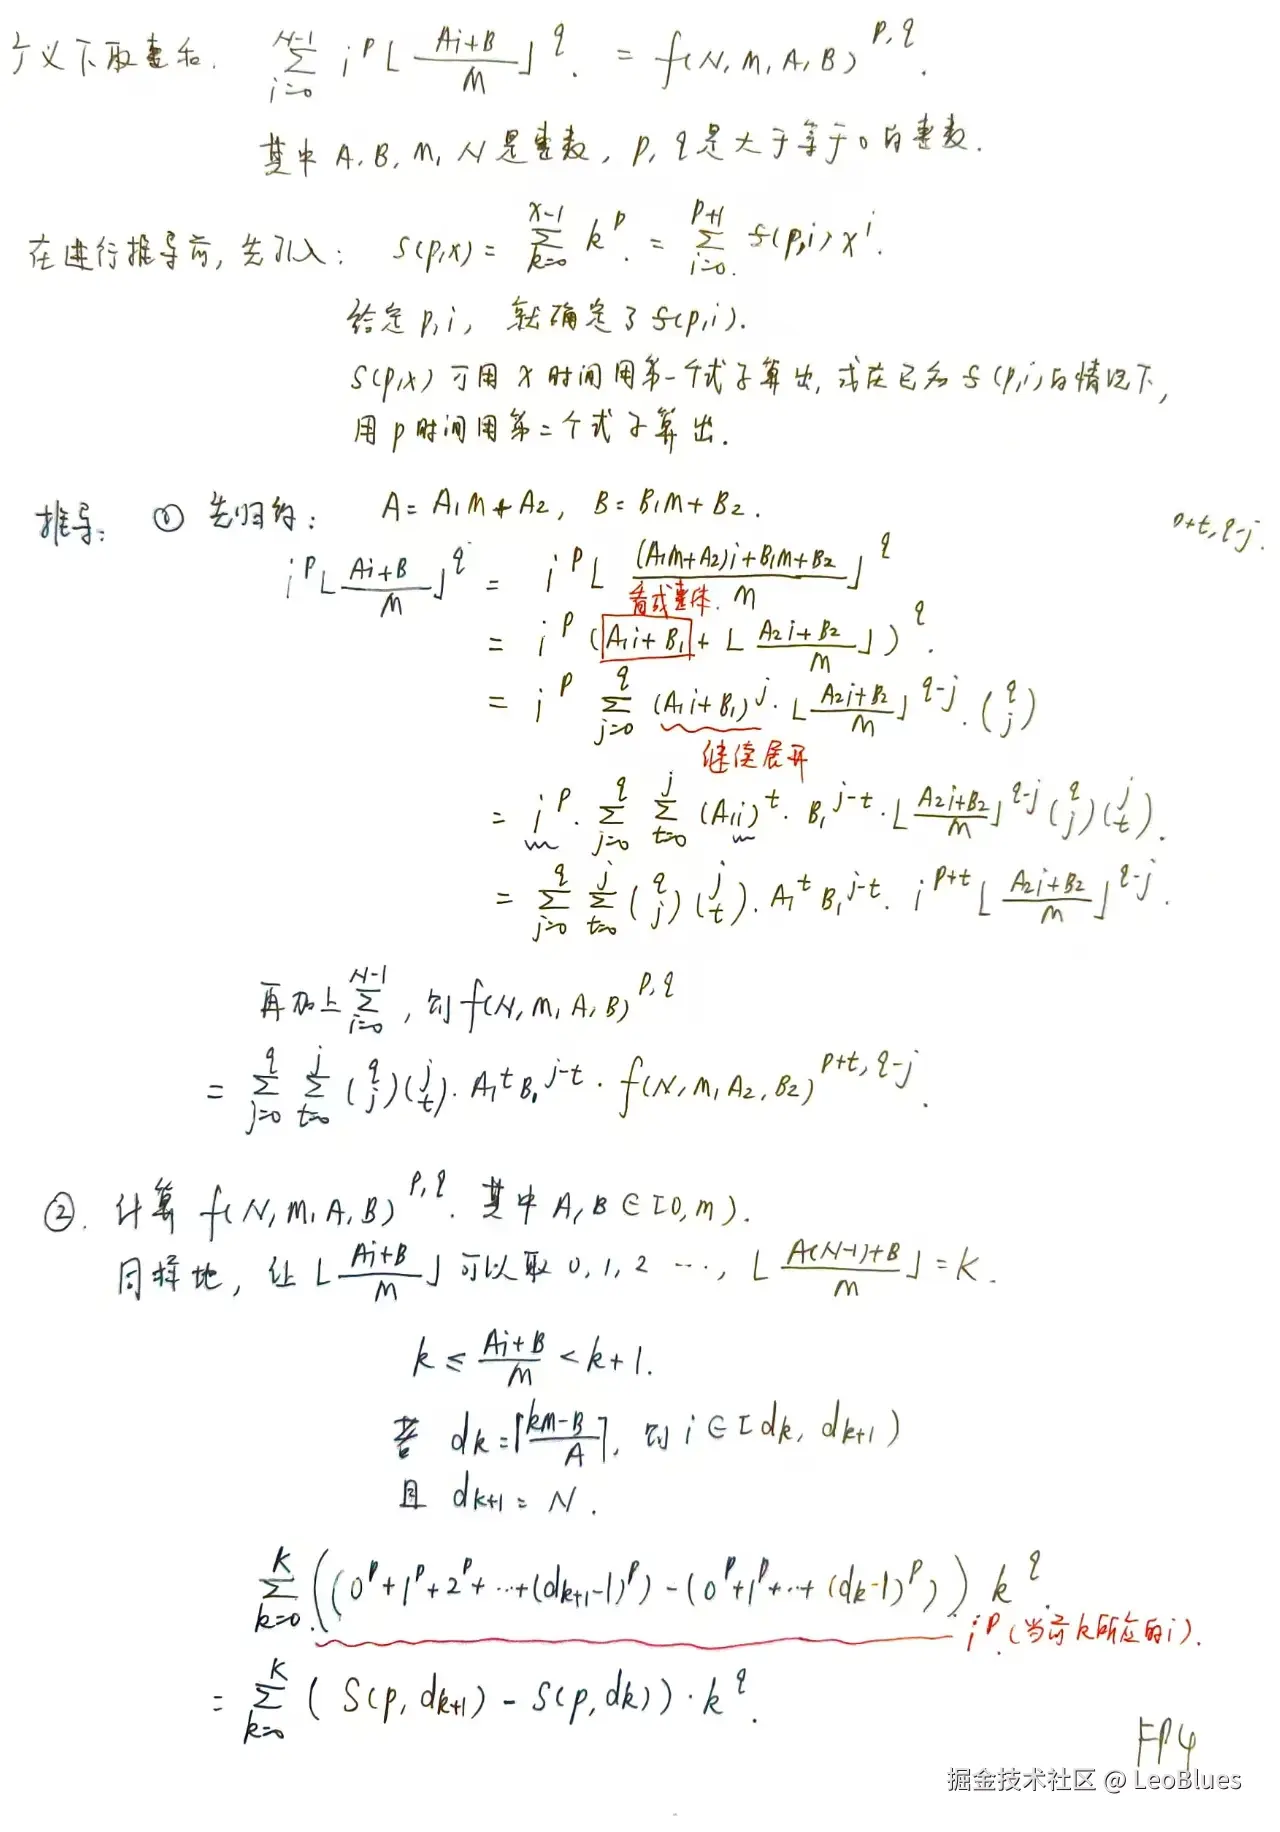 广义下取整和. \sum_{i=0}^{N-1} i^p ⌊\frac{Ai+B}{M}⌋^q. = f(N, M, A, B)^{p,q}.
其中 A, B, M, N是整数, p, q是大于等于0的整数.
在进行推导前, 先引入: S(p,x) = \sum_{k=0}^{x-1} k^p. = \sum_{i=0}^{p+1} s(p,i) x^i.
给定 p, i, 就确定了 s(p,i).
S(p,x) 可用 x 时间用第一个式子算出, 或在已知 s(p,i)的情况下,
用 p 时间用第二个式子算出.
推导: ① 先归约: A = A_1M + A_2, B = B_1M + B_2.
p+t, q-j.
i^p ⌊\frac{Ai+B}{M}⌋^q = i^p ⌊\frac{(A_1M+A_2)i+B_1M+B_2}{M}⌋^q
看成整体.
= i^p (A_1i+B_1 + ⌊\frac{A_2i+B_2}{M}⌋)^q.
= i^p \sum_{j=0}^{q} (A_1i+B_1)^j · ⌊\frac{A_2i+B_2}{M}⌋^{q-j} · \binom{q}{j}
继续展开
= i^p · \sum_{j=0}^{q} \sum_{t=0}^{j} (A_1i)^t · B_1^{j-t} · ⌊\frac{A_2i+B_2}{M}⌋^{q-j} \binom{q}{j} \binom{j}{t}.
= \sum_{j=0}^{q} \sum_{t=0}^{j} \binom{q}{j} \binom{j}{t} · A_1^t B_1^{j-t} · i^{p+t} ⌊\frac{A_2i+B_2}{M}⌋^{q-j}.
再加上 \sum_{i=0}^{N-1}, 则 f(N, M, A, B)^{p,q}
= \sum_{j=0}^{q} \sum_{t=0}^{j} \binom{q}{j} \binom{j}{t} · A_1^t B_1^{j-t} · f(N, M, A_2, B_2)^{p+t, q-j}.
②. 计算 f(N, M, A, B)^{p,q}. 其中 A, B ∈ [0, m).
同样地, 让 ⌊\frac{Ai+B}{M}⌋ 可以取 0, 1, 2 ⋯, ⌊\frac{A(N-1)+B}{M}⌋ = K.
k ≤ \frac{Ai+B}{M} < k+1.
若 d_k = ⌈\frac{kM-B}{A}⌉, 则 i ∈ [d_k, d_{k+1})
且 d_{k+1} = N.
\sum_{k=0}^{K} ((0^p+1^p+2^p+⋯+(d_{k+1}-1)^p) - (0^p+1^p+⋯+(d_k-1)^p)) k^q.
i^p. (当前k所应的i).
= \sum_{k=0}^{K} (S(p, d_{k+1}) - S(p, d_k)) · k^q.
FP4
掘金技术社区 @ LeoBlues